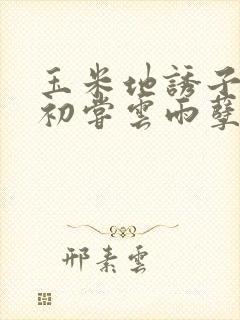 玉米地誘子
初嘗雲雨孽
邢素雲